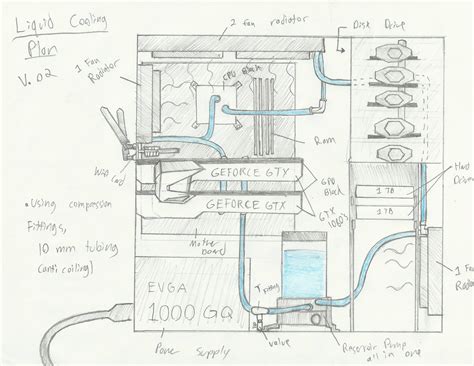 Liquid Cooling
Plan
V. 02
2 fan radiator
Disk Drive
1 Fan
Radiator
CPU Block
Ram
Wifi
Card
GEFORCE GTX
GEFORCE GTX
GPU
Block
GTX
1080's
1 TB
1 TB
Hard
Drives
• Using compression
fittings,
10 mm tubing
(anti coiling)
Mother
board
EVGA
1000 GQ
T
Fitting
1 Fan
Radiator
Power Supply
Valve
Reservoir Pump
all in one